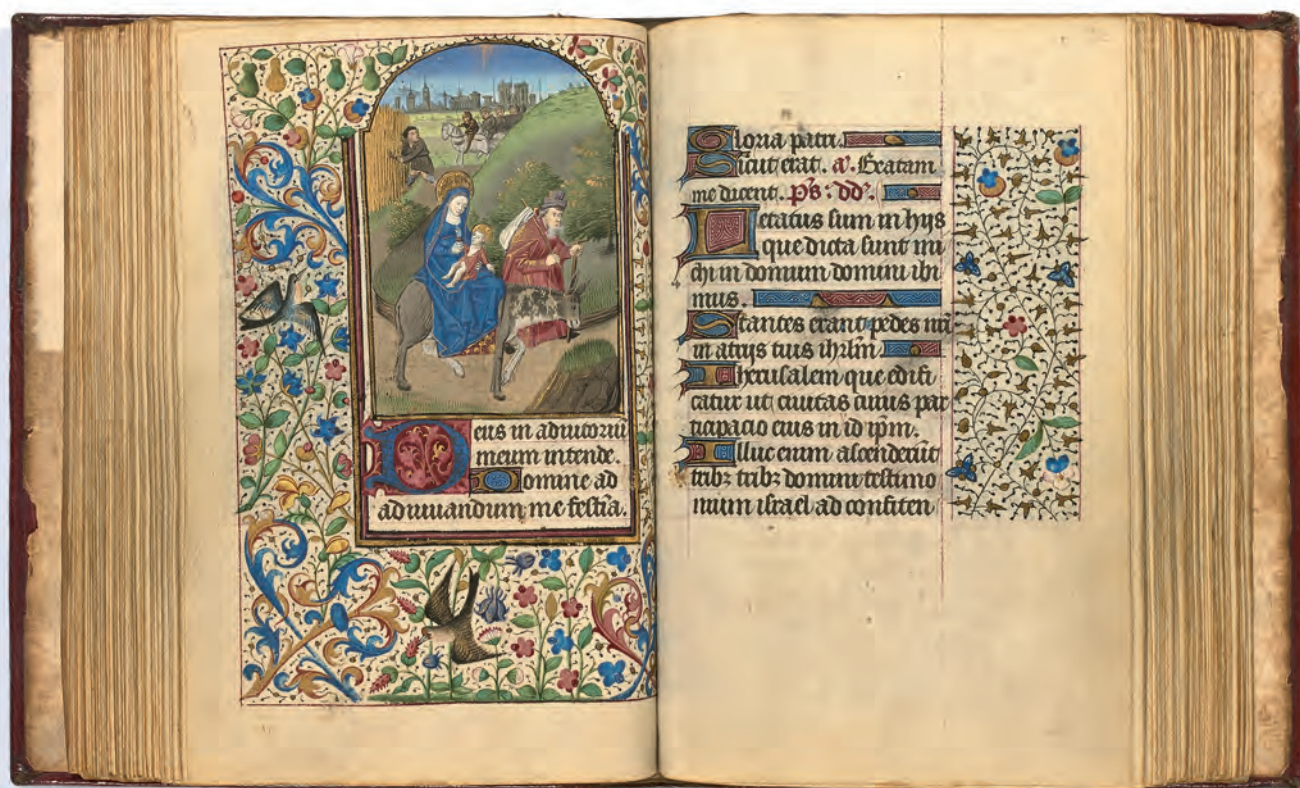 Deus in adiutoriū
meum intende.
Domine ad
adiuuandum me festīa.
Gloria patri.
Sicut erat. a'. Beatam
me dicent. p̄s: dd'.
Letatus sum in hijs
que dicta sunt mi
chi in domum domini ibi
mus.
Stantes erant pedes nr̄i
in atrijs tuis ihrl̄m.
Iherusalem que edifi
catur ut ciuitas cuius par
ticipacio eius in id ip̄m.
Illuc enim ascenderūt
tribꝫ tribꝫ domini testimo
nium israel ad confiten